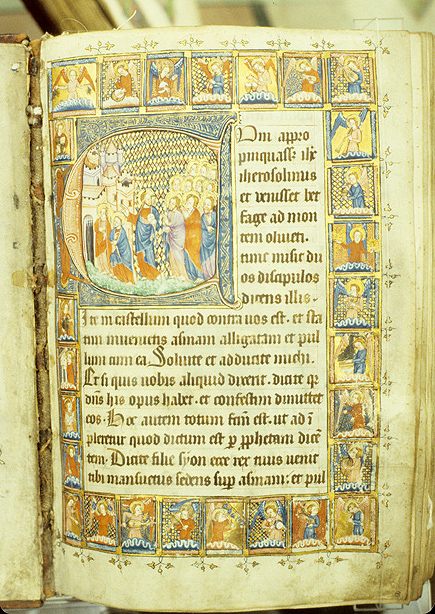 Cum appro
pinquass; ihc
iherosolimis
et venisset bet
fage ad mon
tem oliueti.
tunc misit du
os discipulos
dicens illis.
Ite in castellum quod contra uos est. et sta
tim inuenietis asinam alligatam et pul
lum cum ea. Soluite et adducite michi.
Et si quis uobis aliquid dixerit. dicite q
dns his opus habet. et confestim dimittet
eos. Hoc autem totum fcm est. ut ad ī
pleretur quod dictum est p pphetam dicē
tem. Dicite filie syon ecce rex tuus uenit
tibi mansuetus sedens supp asinam: et pul